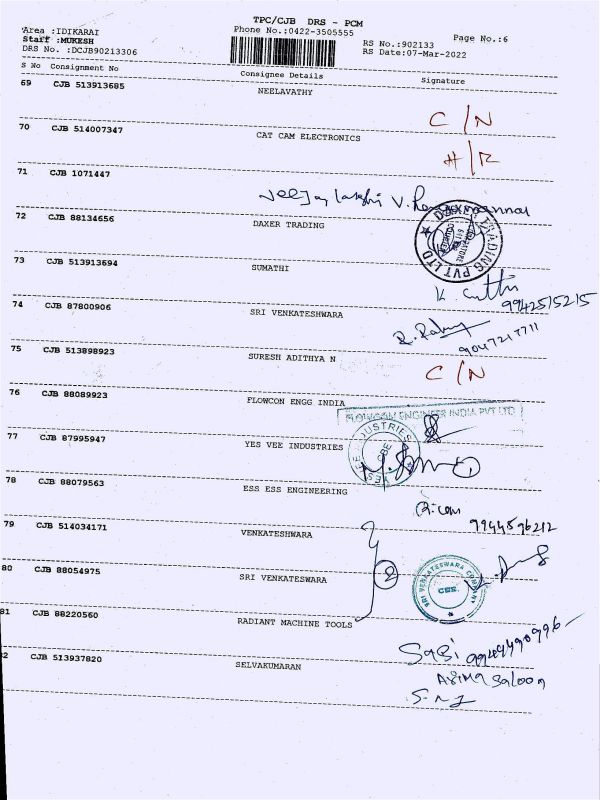 TPC/CJB DRS - PCM
Area :IDIKARAI
Phone No.:0422-3505555
Page No.:6
Staff :MUKESH
RS No.:902133
DRS No. :DCJB90213306
RS Date:07-Mar-2022
S No Consignment No Consignee Details Signature
69 CJB 513913685 NEELAVATHY
C/N
70 CJB 514007347 CAT CAM ELECTRONICS
H/R
71 CJB 1071447
V.
72 CJB 88134656 DAXER TRADING
DAXER TRADING PVT LTD
73 CJB 513913694 SUMATHI
K.
9942515215
74 CJB 87800906 SRI VENKATESHWARA
R.
75 CJB 513898923 SURESH ADITHYA N
C/N
76 CJB 88089923 FLOWCON ENGG INDIA
FLOWCON ENGINEER INDIA PVT LTD
77 CJB 87995947 YES VEE INDUSTRIES
CBE
78 CJB 88079563 ESS ESS ENGINEERING
9944596212
79 CJB 514034171 VENKATESHWARA
2
80 CJB 88054975 SRI VENKATESWARA
SRI VENKATESWARA COMPANY
CBE.
81 CJB 88220560 RADIANT MACHINE TOOLS
Sasi 9944490996
82 CJB 513937820 SELVAKUMARAN
Saloon